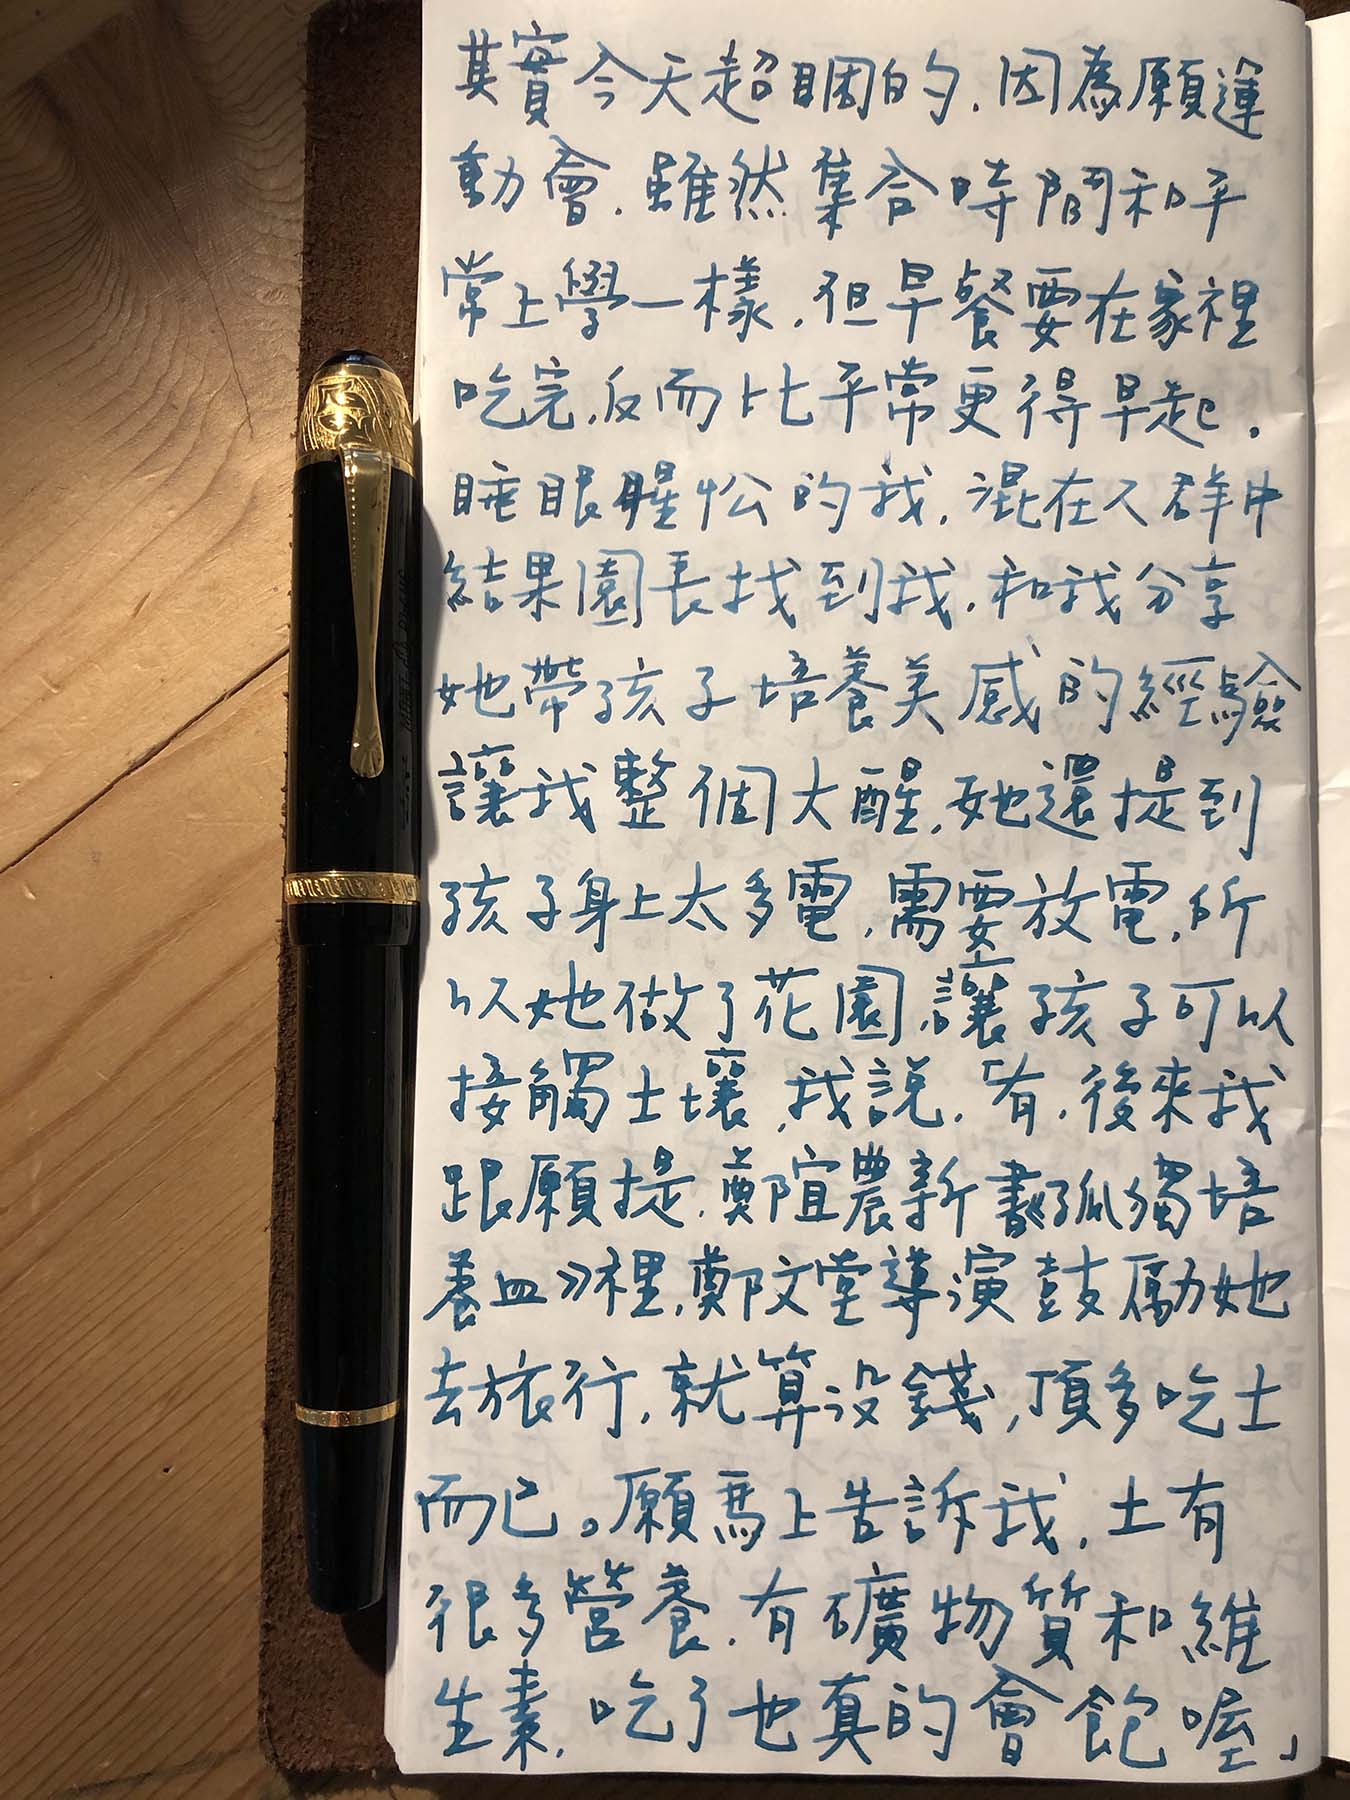 其實今天超睏的，因為願運
動會，雖然集合時間和平
常上學一樣，但早餐要在家裡
吃完，反而比平常更得早起。
睡眼惺忪的我，混在人群中
結果園長找到我，和我分享
她帶孩子培養美感的經驗
讓我整個大醒，她還提到
孩子身上太多電，需要放電，所
以她做了花園，讓孩子可以
接觸土壤，我說，有，後來我
跟願提，鄭宜農新書《孤獨培
養皿》裡，鄭文堂導演鼓勵她
去旅行，就算沒錢，頂多吃土
而已。願馬上告訴我，土有
很多營養，有礦物質和維
生素，吃了也真的會飽喔」